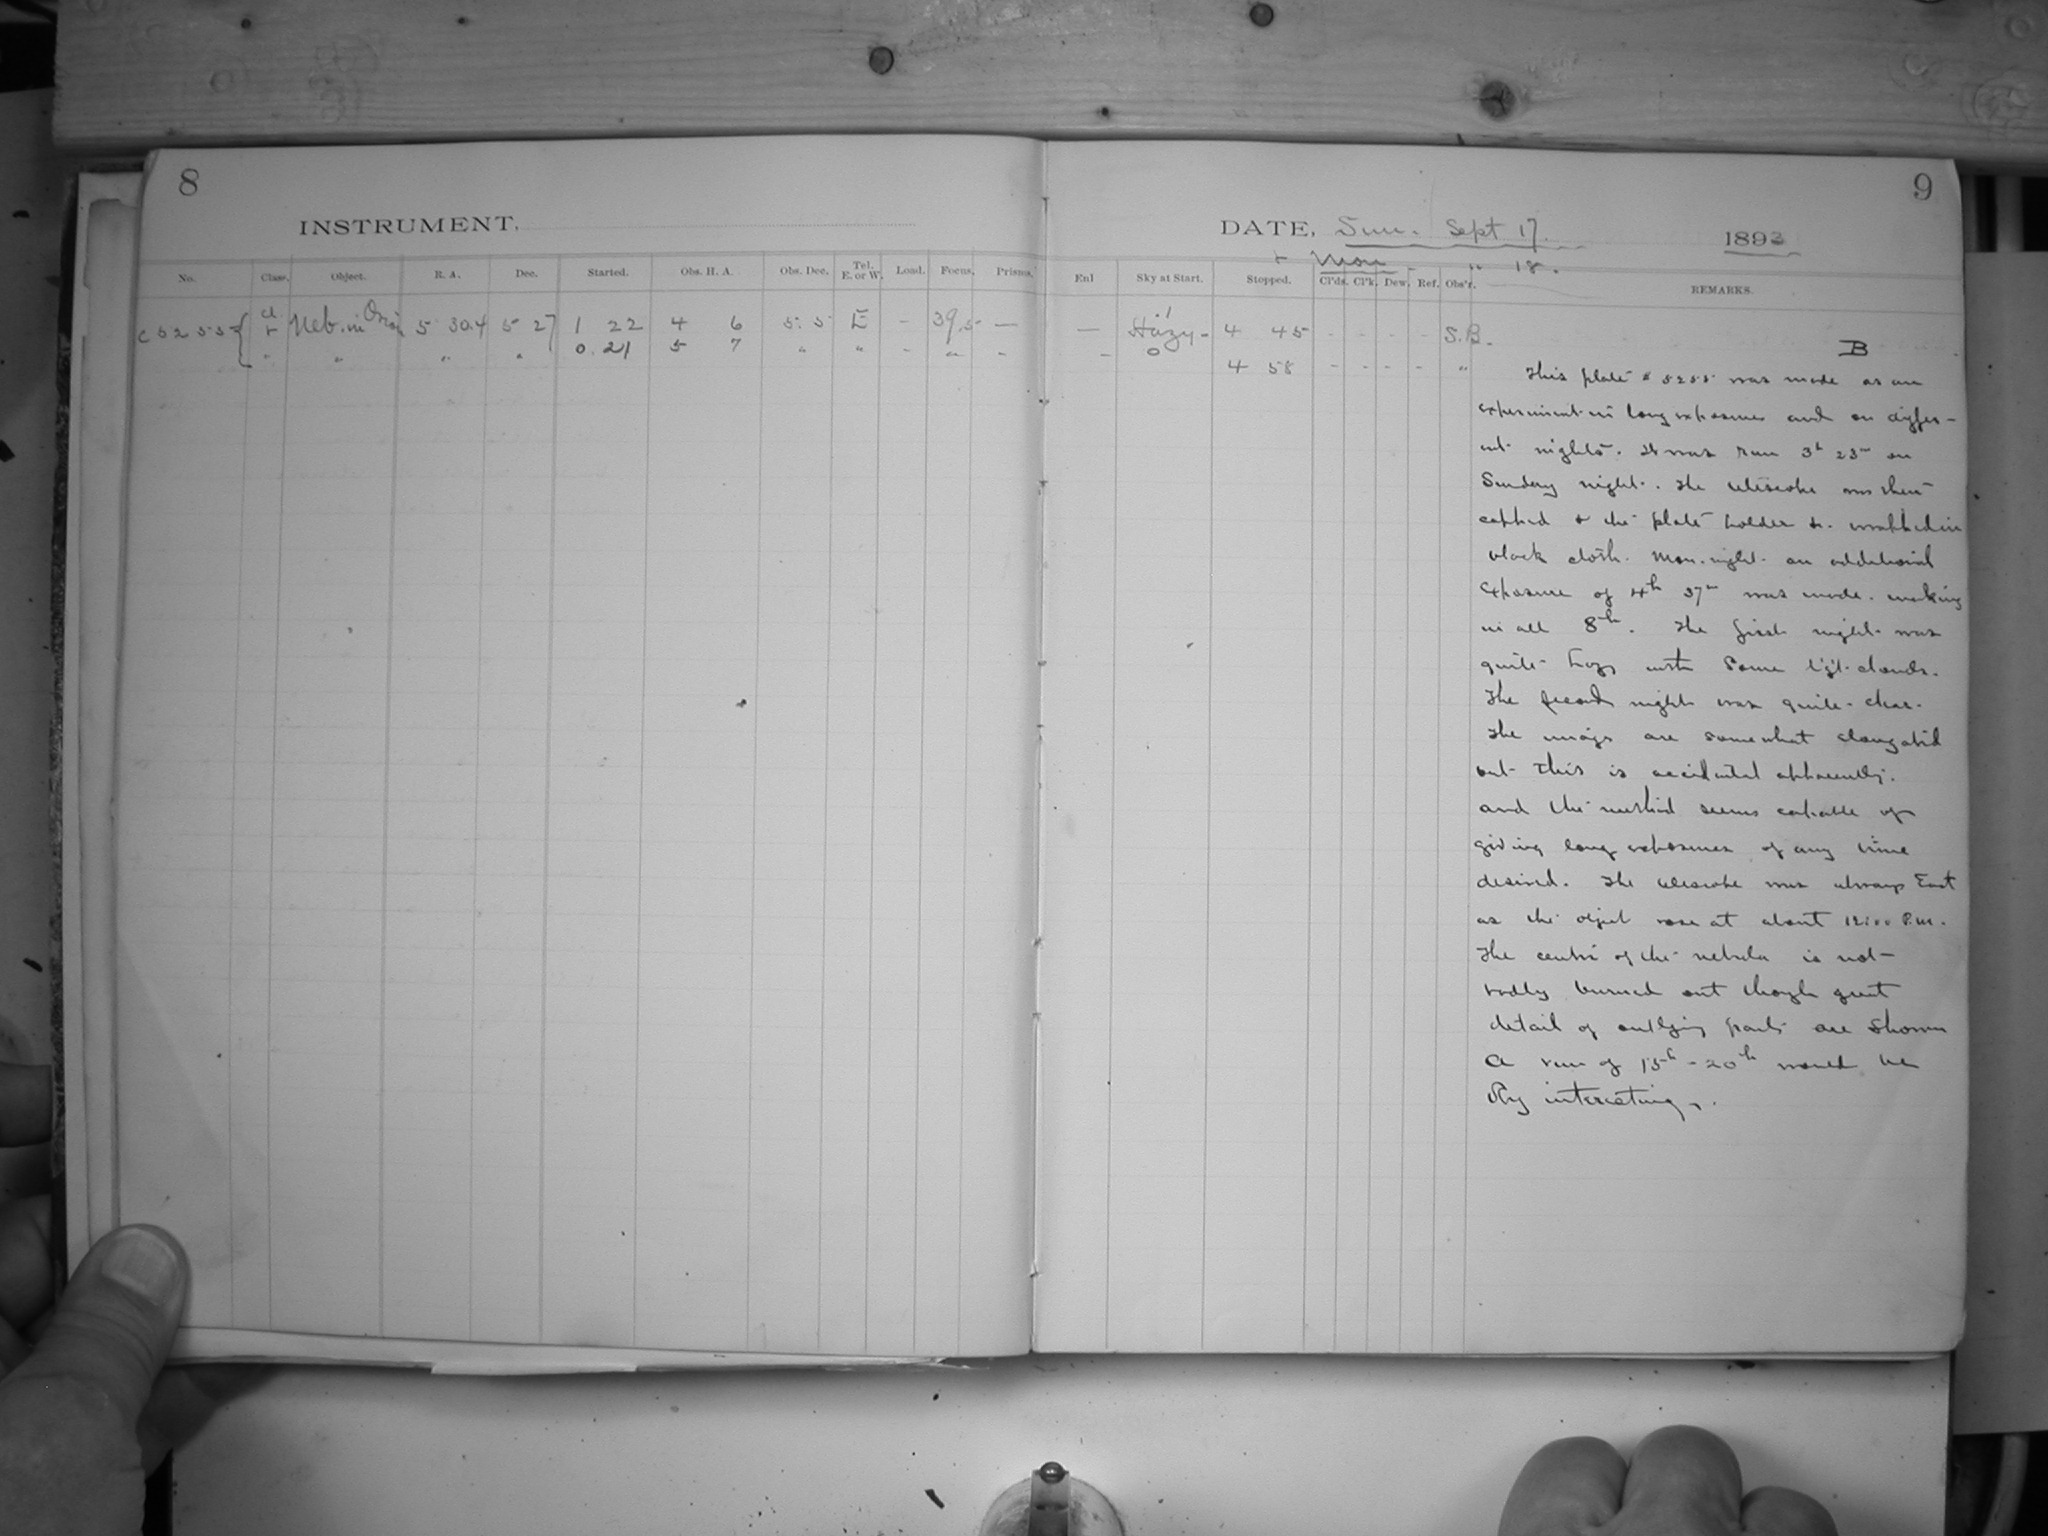 8
9
INSTRUMENT.
DATE, Sun. Sept 17. 1893
+ Mon " 18.
No. Class. Object. R. A. Dec. Started. Obs. H. A. Obs. Dec. Tel. E. or W. Load. Focus. Prisms. Enl Sky at Start. Stopped. Cl'ds. Cl'k. Dew. Ref. Obs'r. REMARKS.
C 5255 { d r Neb. in Orion 5 30.4 5 27 1 22 4 6 5. 5 E - 39.5 — — Hazy - 4 45 - - - - S.B.
" " " " 0. 21 5 7 " " - " - - 0 4 58 - - - - "
B
This plate # 5255 was made as an
experiment in long exposures and on differ-
ent nights. It was run 3h 23m on
Sunday night. The telescope was then
capped & the plate holder &c. wrapped in
black cloth. Mon. night an additional
exposure of 4h 37m was made. making
in all 8h. The first night was
quite hazy with some l'g't clouds.
The second night was quite clear.
The images are somewhat elongated
but this is accidental apparently.
and the method seems capable of
giving long exposures of any time
desired. The telescope was always East
as the object rose at about 12:00 P.M.
The centre of the nebula is not
badly burned out though great
detail of outlying parts are shown
A run of 15h - 20h would be
very interesting.